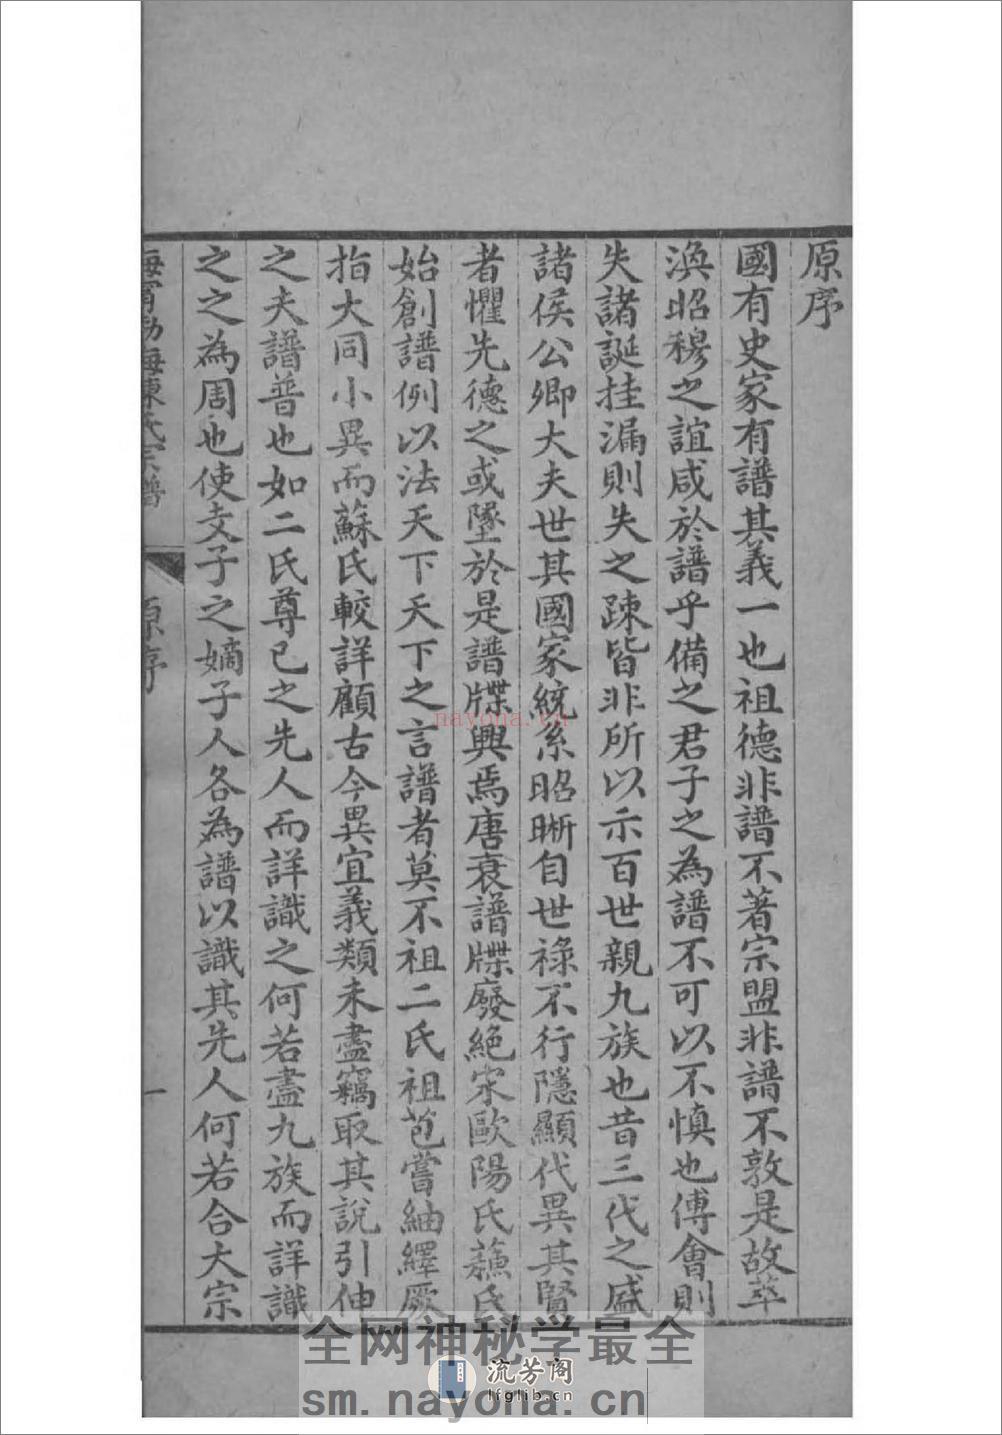 原序
國有史家有譜其義一也祖德非譜不著宗盟非譜不敦是故萃
渙昭穆之誼咸於譜乎備之君子之為譜不可以不慎也傅會則
失諸誕挂漏則失之踈皆非所以示百世親九族也昔三代之盛
諸侯公卿大夫世其國家統系昭晰自世祿不行隱顯代異其賢
者懼先德之或墜於是譜牒興焉唐衰譜牒廢絕宋歐陽氏蘓氏
始創譜例以法天下天下之言譜者莫不祖二氏祖苞嘗紬繹厥
指大同小異而蘇氏較詳顧古今異宜義類未盡竊取其說引伸
之夫譜普也如二氏尊已之先人而詳識之何若盡九族而詳識
之之為周也使支子之嫡子人各為譜以識其先人何若合大宗
海甯渤海陳氏宗譜
原序
一
nayona.cn
全网神秘学最全
流芳阁
lfglib.cn
sm.nayona.cn